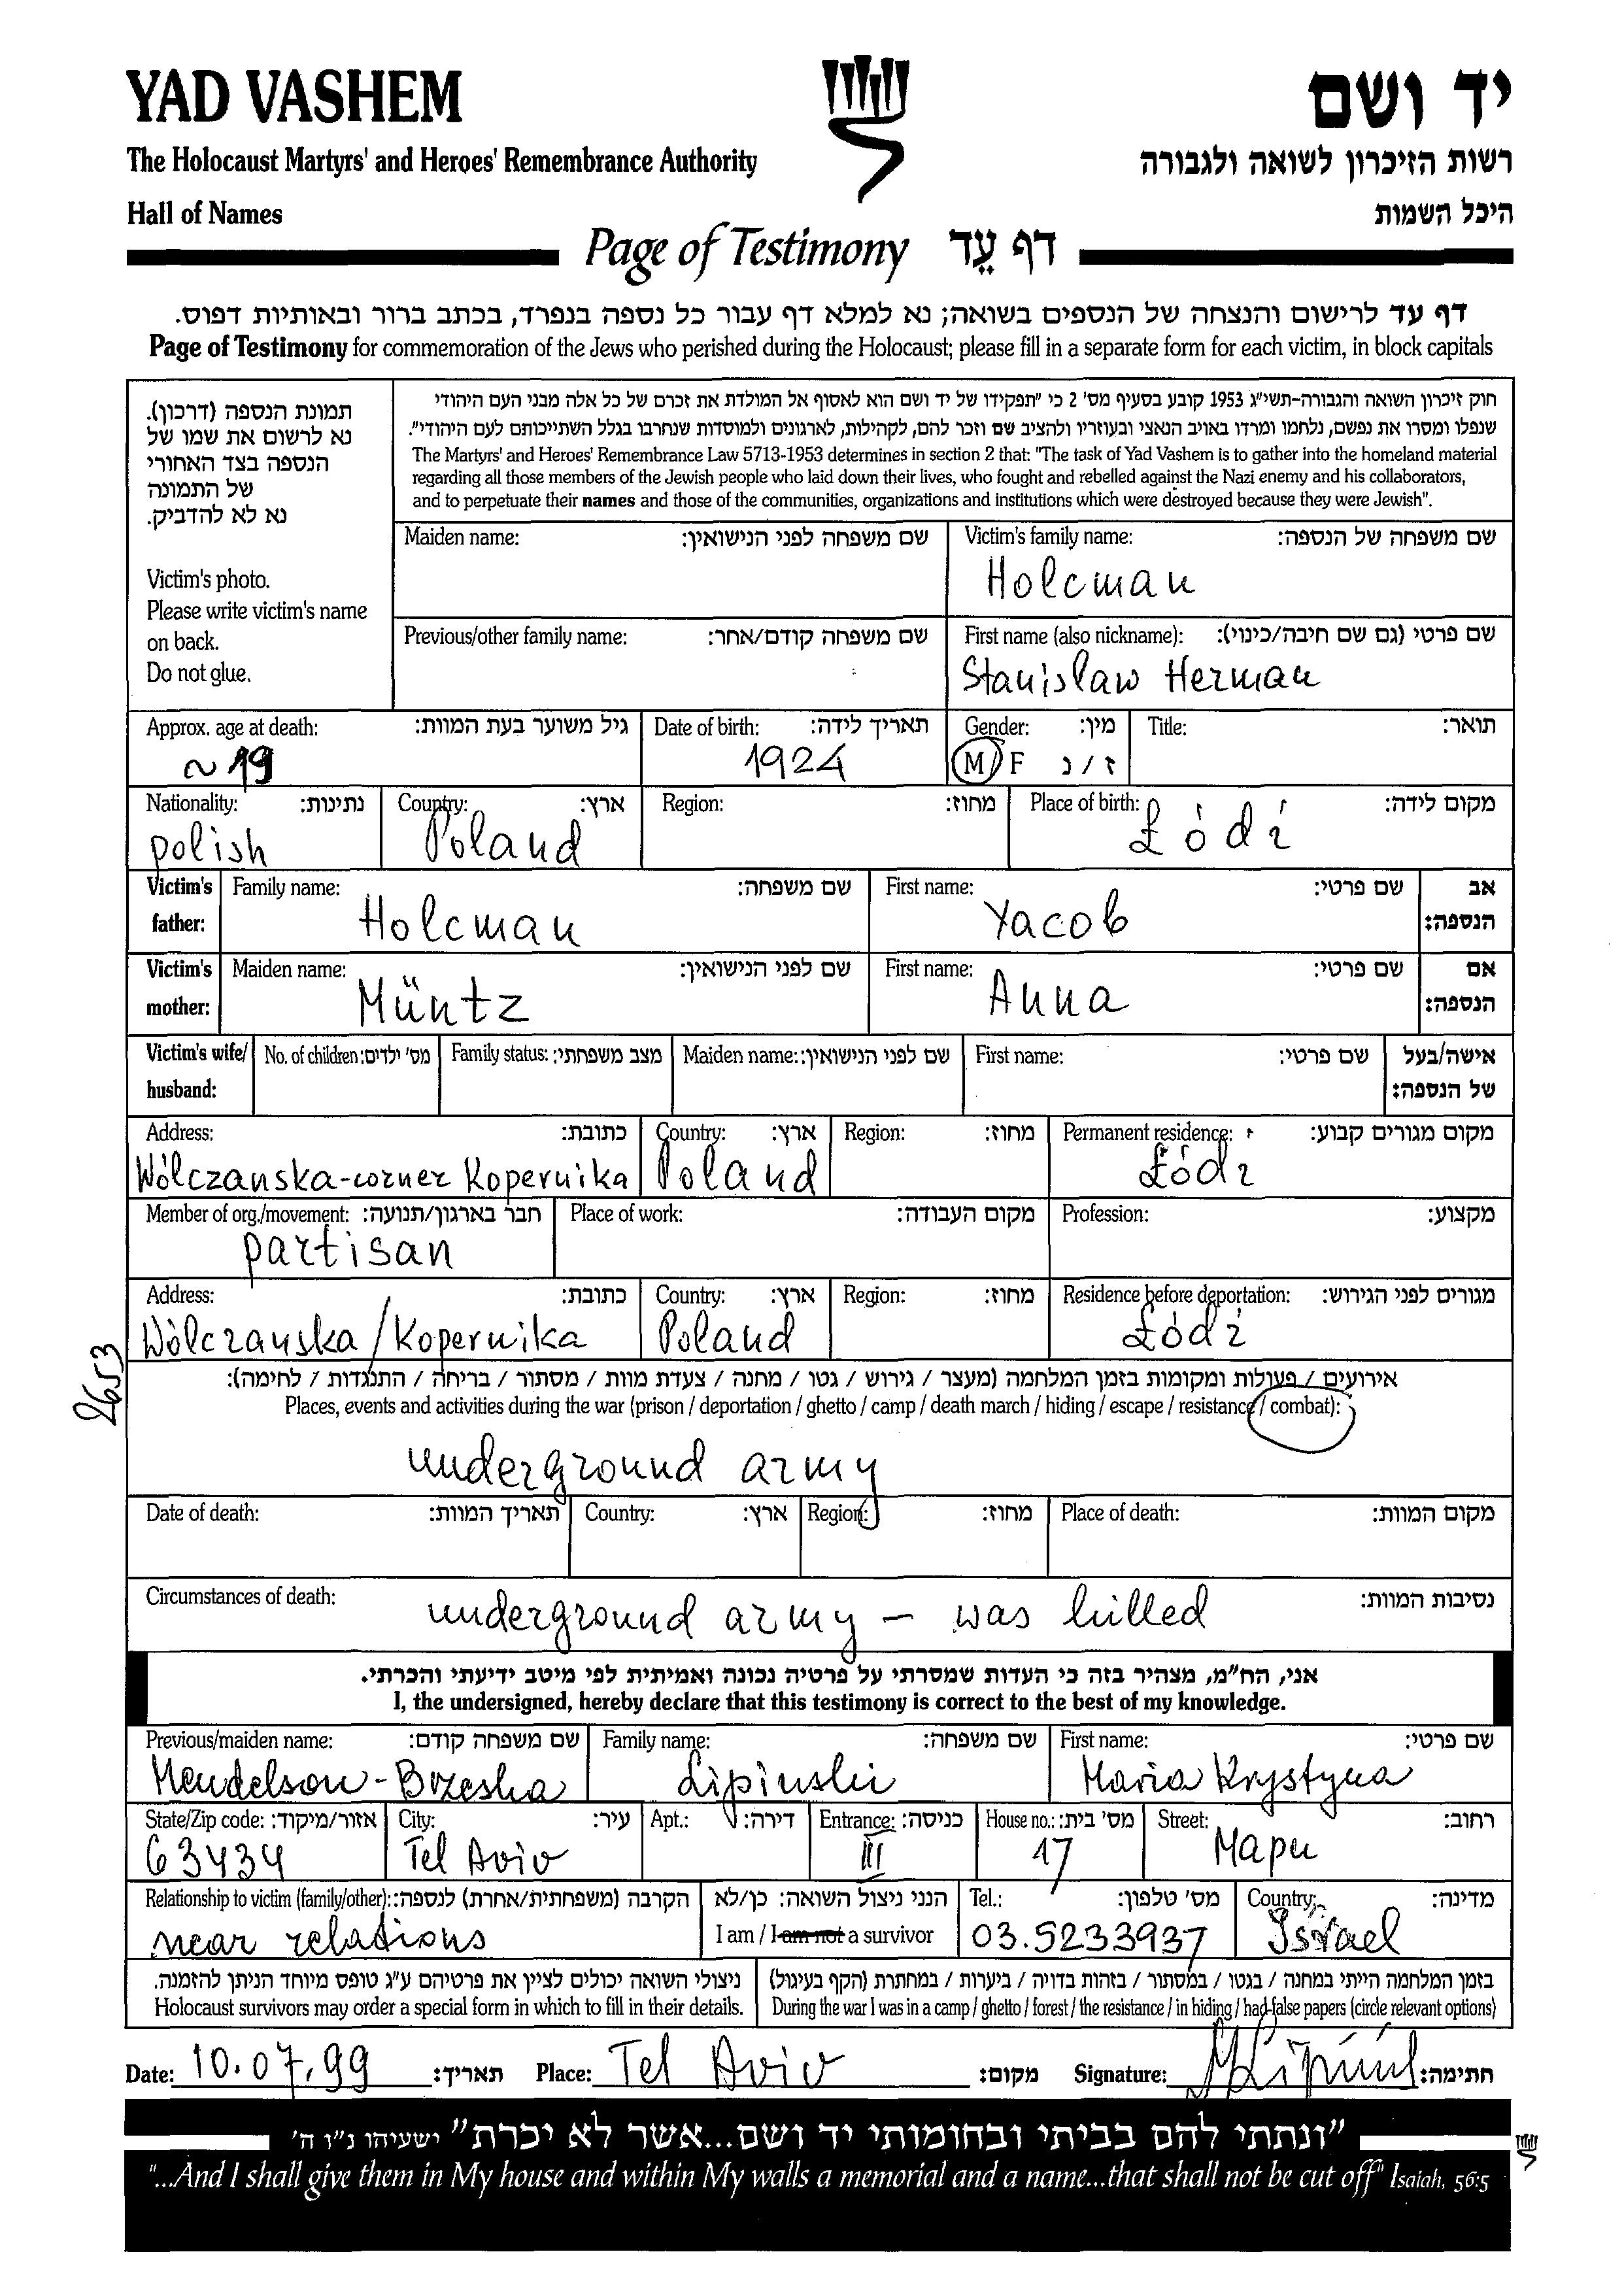 YAD VASHEM
יד ושם
The Holocaust Martyrs' and Heroes' Remembrance Authority
רשות הזיכרון לשואה ולגבורה
Hall of Names
היכל השמות
Page of Testimony דף עֵד
דף עד לרישום והנצחה של הנספים בשואה; נא למלא דף עבור כל נספה בנפרד, בכתב ברור ובאותיות דפוס.
Page of Testimony for commemoration of the Jews who perished during the Holocaust; please fill in a separate form for each victim, in block capitals
תמונת הנספה (דרכון).
נא לרשום את שמו של
הנספה בצד האחורי
של התמונה
נא לא להדביק.
Victim's photo.
Please write victim's name
on back.
Do not glue.
חוק זיכרון השואה והגבורה-תשי"ג 1953 קובע בסעיף מס' 2 כי "תפקידו של יד ושם הוא לאסוף אל המולדת את זכרם של כל אלה מבני העם היהודי
שנפלו ומסרו את נפשם, נלחמו ומרדו באויב הנאצי ובעוזריו ולהציב שם וזכר להם, לקהילות, לארגונים ולמוסדות שנחרבו בגלל השתייכותם לעם היהודי".
The Martyrs' and Heroes' Remembrance Law 5713-1953 determines in section 2 that: "The task of Yad Vashem is to gather into the homeland material
regarding all those members of the Jewish people who laid down their lives, who fought and rebelled against the Nazi enemy and his collaborators,
and to perpetuate their names and those of the communities, organizations and institutions which were destroyed because they were Jewish".
Maiden name: שם משפחה לפני הנישואין: Victim's family name: שם משפחה של הנספה:
Holcman
Previous/other family name: שם משפחה קודם/אחר: First name (also nickname): שם פרטי (גם שם חיבה/כינוי):
Stanislaw Herman
Approx. age at death: גיל משוער בעת המוות: Date of birth: תאריך לידה: Gender: מין: Title: תואר:
~ 19 1924 M/F ז/נ
Nationality: נתינות: Country: ארץ: Region: מחוז: Place of birth: מקום לידה:
polish Poland Łódź
Victim's father: Family name: שם משפחה: First name: שם פרטי: אב הנספה:
Holcman Yacob
Victim's mother: Maiden name: שם לפני הנישואין: First name: שם פרטי: אם הנספה:
Müntz Anna
Victim's wife/ husband: No. of children: מס' ילדים: Family status: מצב משפחתי: Maiden name: שם לפני הנישואין: First name: שם פרטי: אישה/בעל של הנספה:
Address: כתובת: Country: ארץ: Region: מחוז: Permanent residence: מקום מגורים קבוע:
Wólczanska-corner Kopernika Poland Łódź
Member of org./movement: חבר בארגון/תנועה: Place of work: מקום העבודה: Profession: מקצוע:
partisan
Address: כתובת: Country: ארץ: Region: מחוז: Residence before deportation: מגורים לפני הגירוש:
Wólczanska/Kopernika Poland Łódź
2653
אירועים / פעולות ומקומות בזמן המלחמה (מעצר / גירוש / גטו / מחנה / צעדת מוות / מסתור / בריחה / התנגדות / לחימה):
Places, events and activities during the war (prison / deportation / ghetto / camp / death march / hiding / escape / resistance / combat):
underground army
Date of death: תאריך המוות: Country: ארץ: Region: מחוז: Place of death: מקום המוות:
Circumstances of death: נסיבות המוות:
underground army - was killed
אני, הח"מ, מצהיר בזה כי העדות שמסרתי על פרטיה נכונה ואמיתית לפי מיטב ידיעתי והכרתי.
I, the undersigned, hereby declare that this testimony is correct to the best of my knowledge.
Previous/maiden name: שם משפחה קודם: Family name: שם משפחה: First name: שם פרטי:
Mendelson-Brzeska Lipinski Maria Krystyna
State/Zip code: אזור/מיקוד: City: עיר: Apt.: דירה: Entrance: כניסה: House no.: מס' בית: Street: רחוב:
63434 Tel Aviv III 17 Mapu
Relationship to victim (family/other): הקרבה (משפחתית/אחרת) לנספה: הנני ניצול השואה: כן/לא Tel.: מס' טלפון: Country: מדינה:
near relations I am / I am not a survivor 03.5233937 Israel
ניצולי השואה יכולים לציין את פרטיהם ע"ג טופס מיוחד הניתן להזמנה.
Holocaust survivors may order a special form in which to fill in their details.
בזמן המלחמה הייתי במחנה / בגטו / במסתור / בזהות בדויה / ביערות / במחתרת (הקף בעיגול)
During the war I was in a camp / ghetto / forest / the resistance / in hiding / had false papers (circle relevant options)
Date: 10.07.99 תאריך: Place: Tel Aviv מקום: Signature: חתימה:
"ונתתי להם בביתי ובחומותי יד ושם...אשר לא יכרת" ישעיהו נ"ו ה'
"...And I shall give them in My house and within My walls a memorial and a name...that shall not be cut off" Isaiah, 56:5